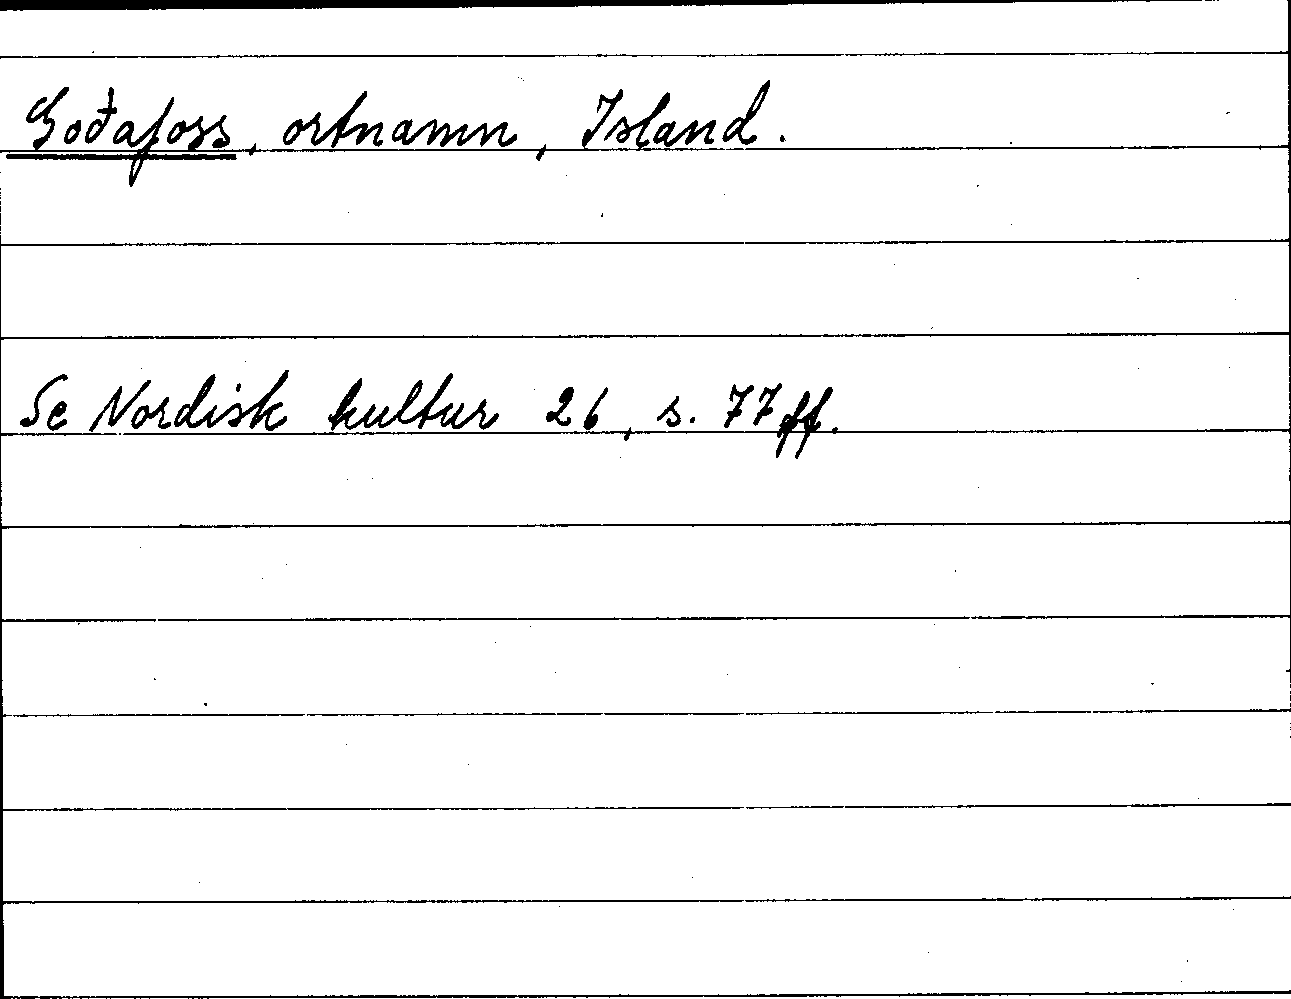 Goðafoss, ortnamn, Island.
Se Nordisk kultur 26, s. 77 ff.